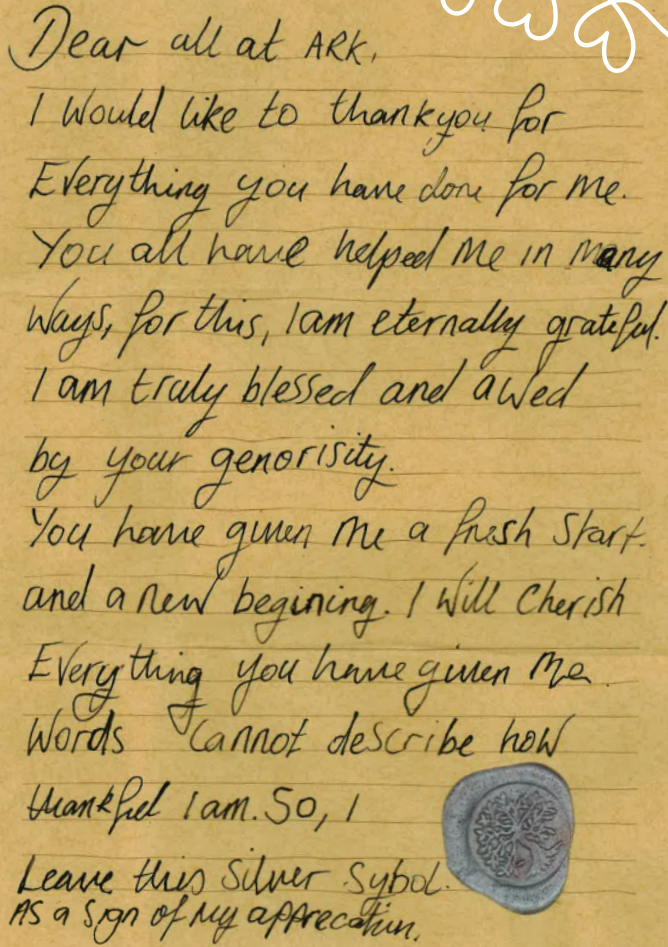 Dear all at ARK,
I Would like to thankyou for
Everything you have done for me.
You all have helped Me in Many
Ways, for this, I am eternally grateful.
I am truly blessed and awed
by your genorisity.
You have given Me a fresh Start.
and a new begining. I Will Cherish
Everything you have given Me.
Words Cannot describe how
thankful I am. So, I
Leave this Silver Sybol.
As a Sign of My apprecation.